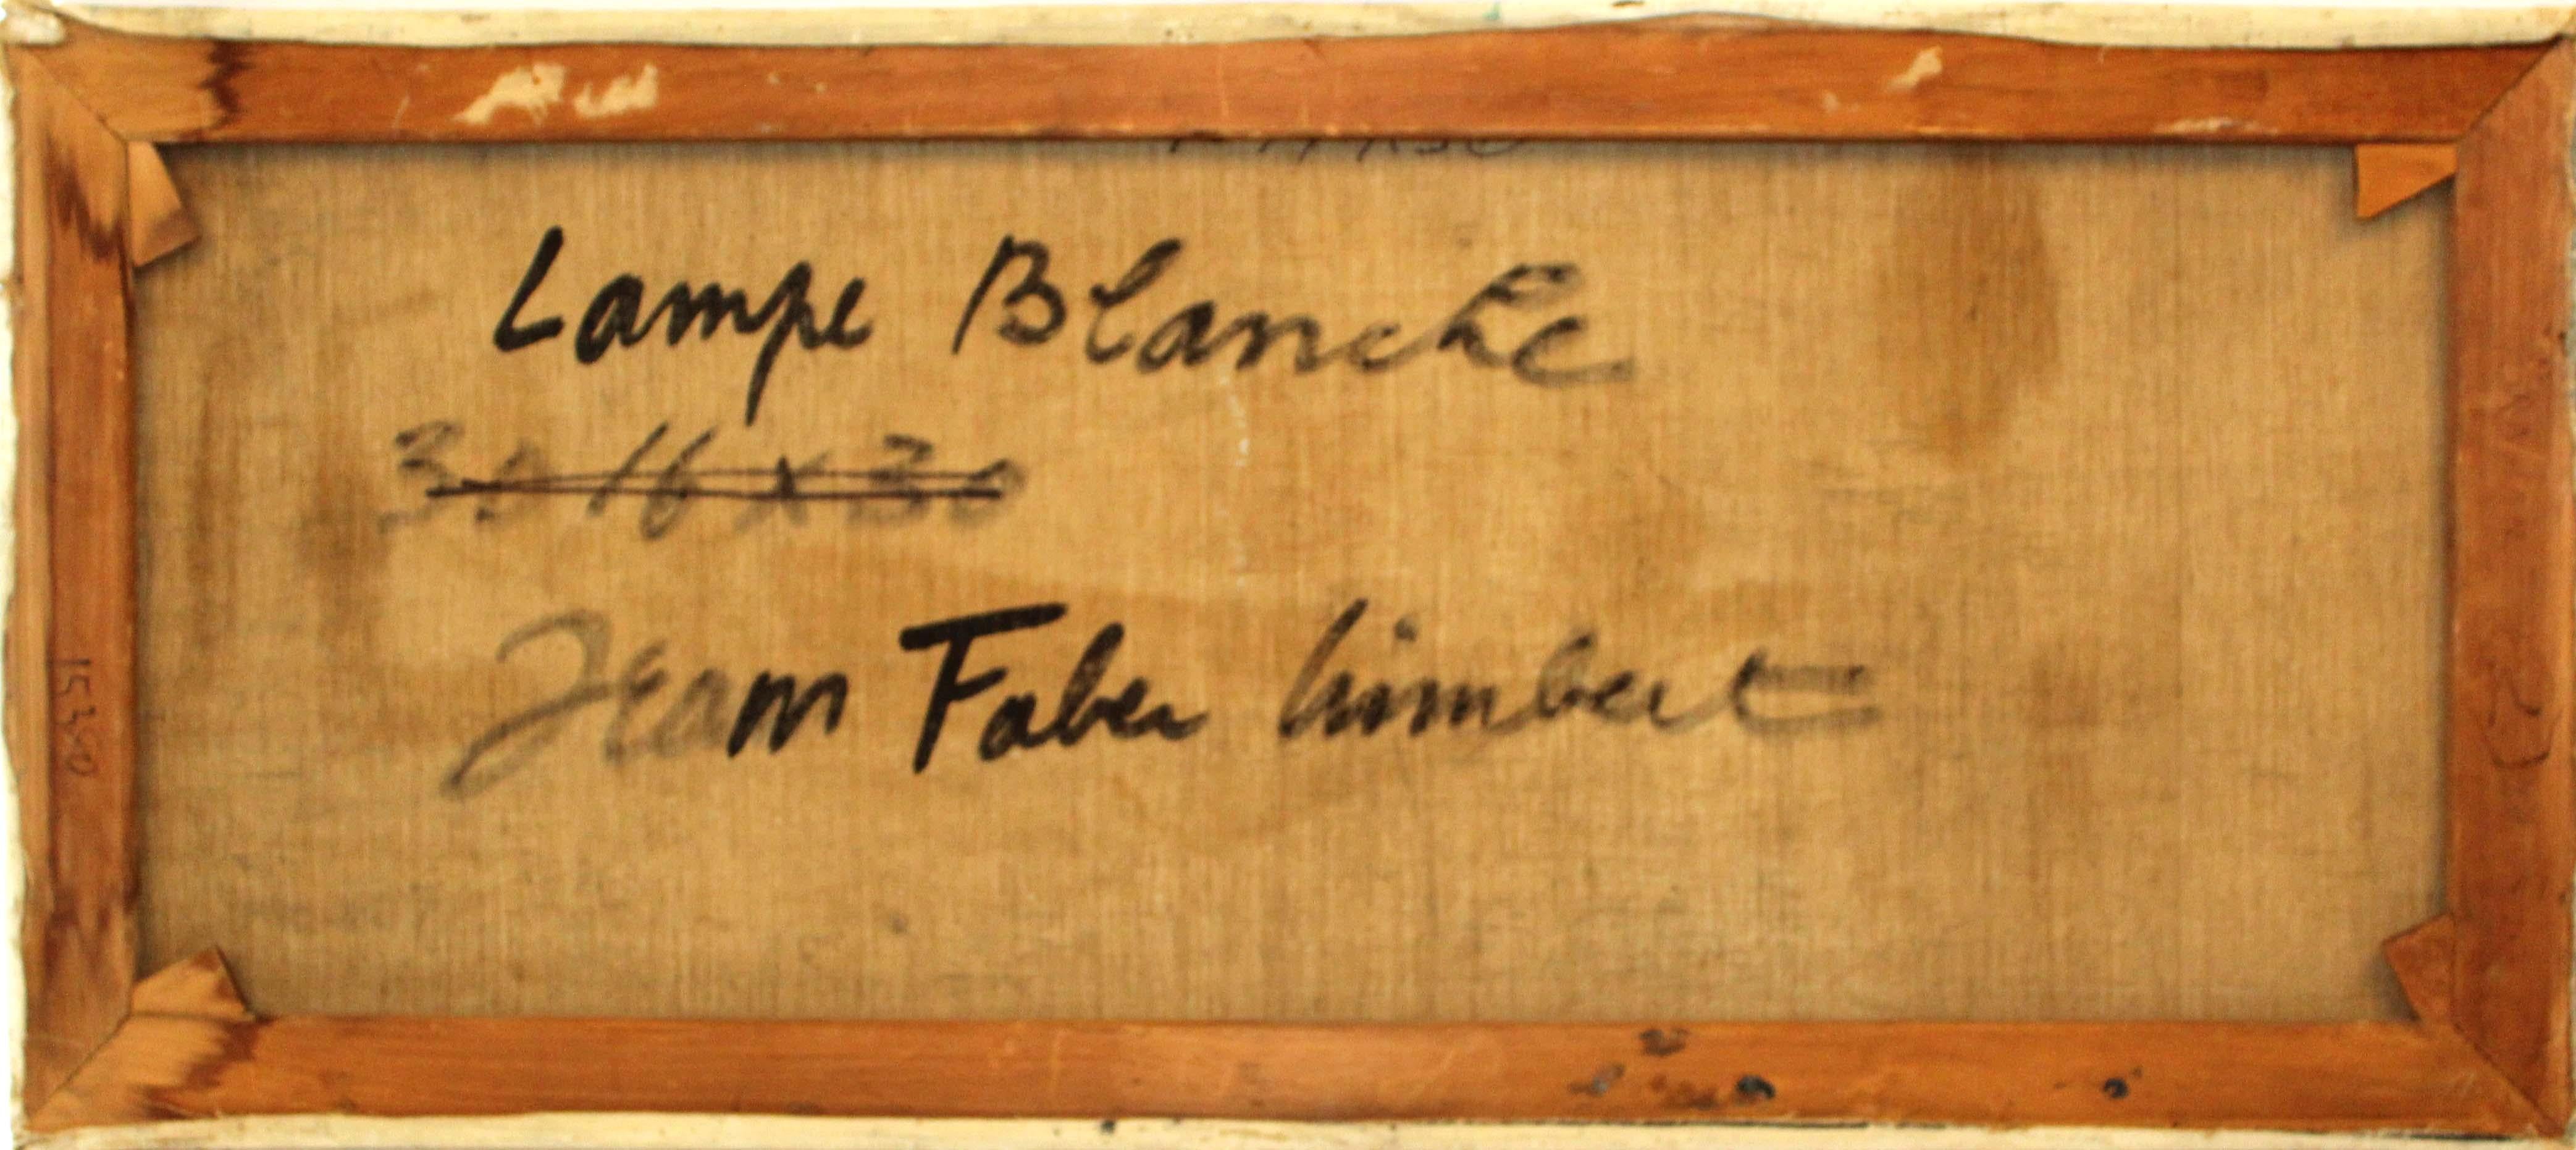 Lampe Blanche
30 16 x 30
Jean Faber Limbert
15350